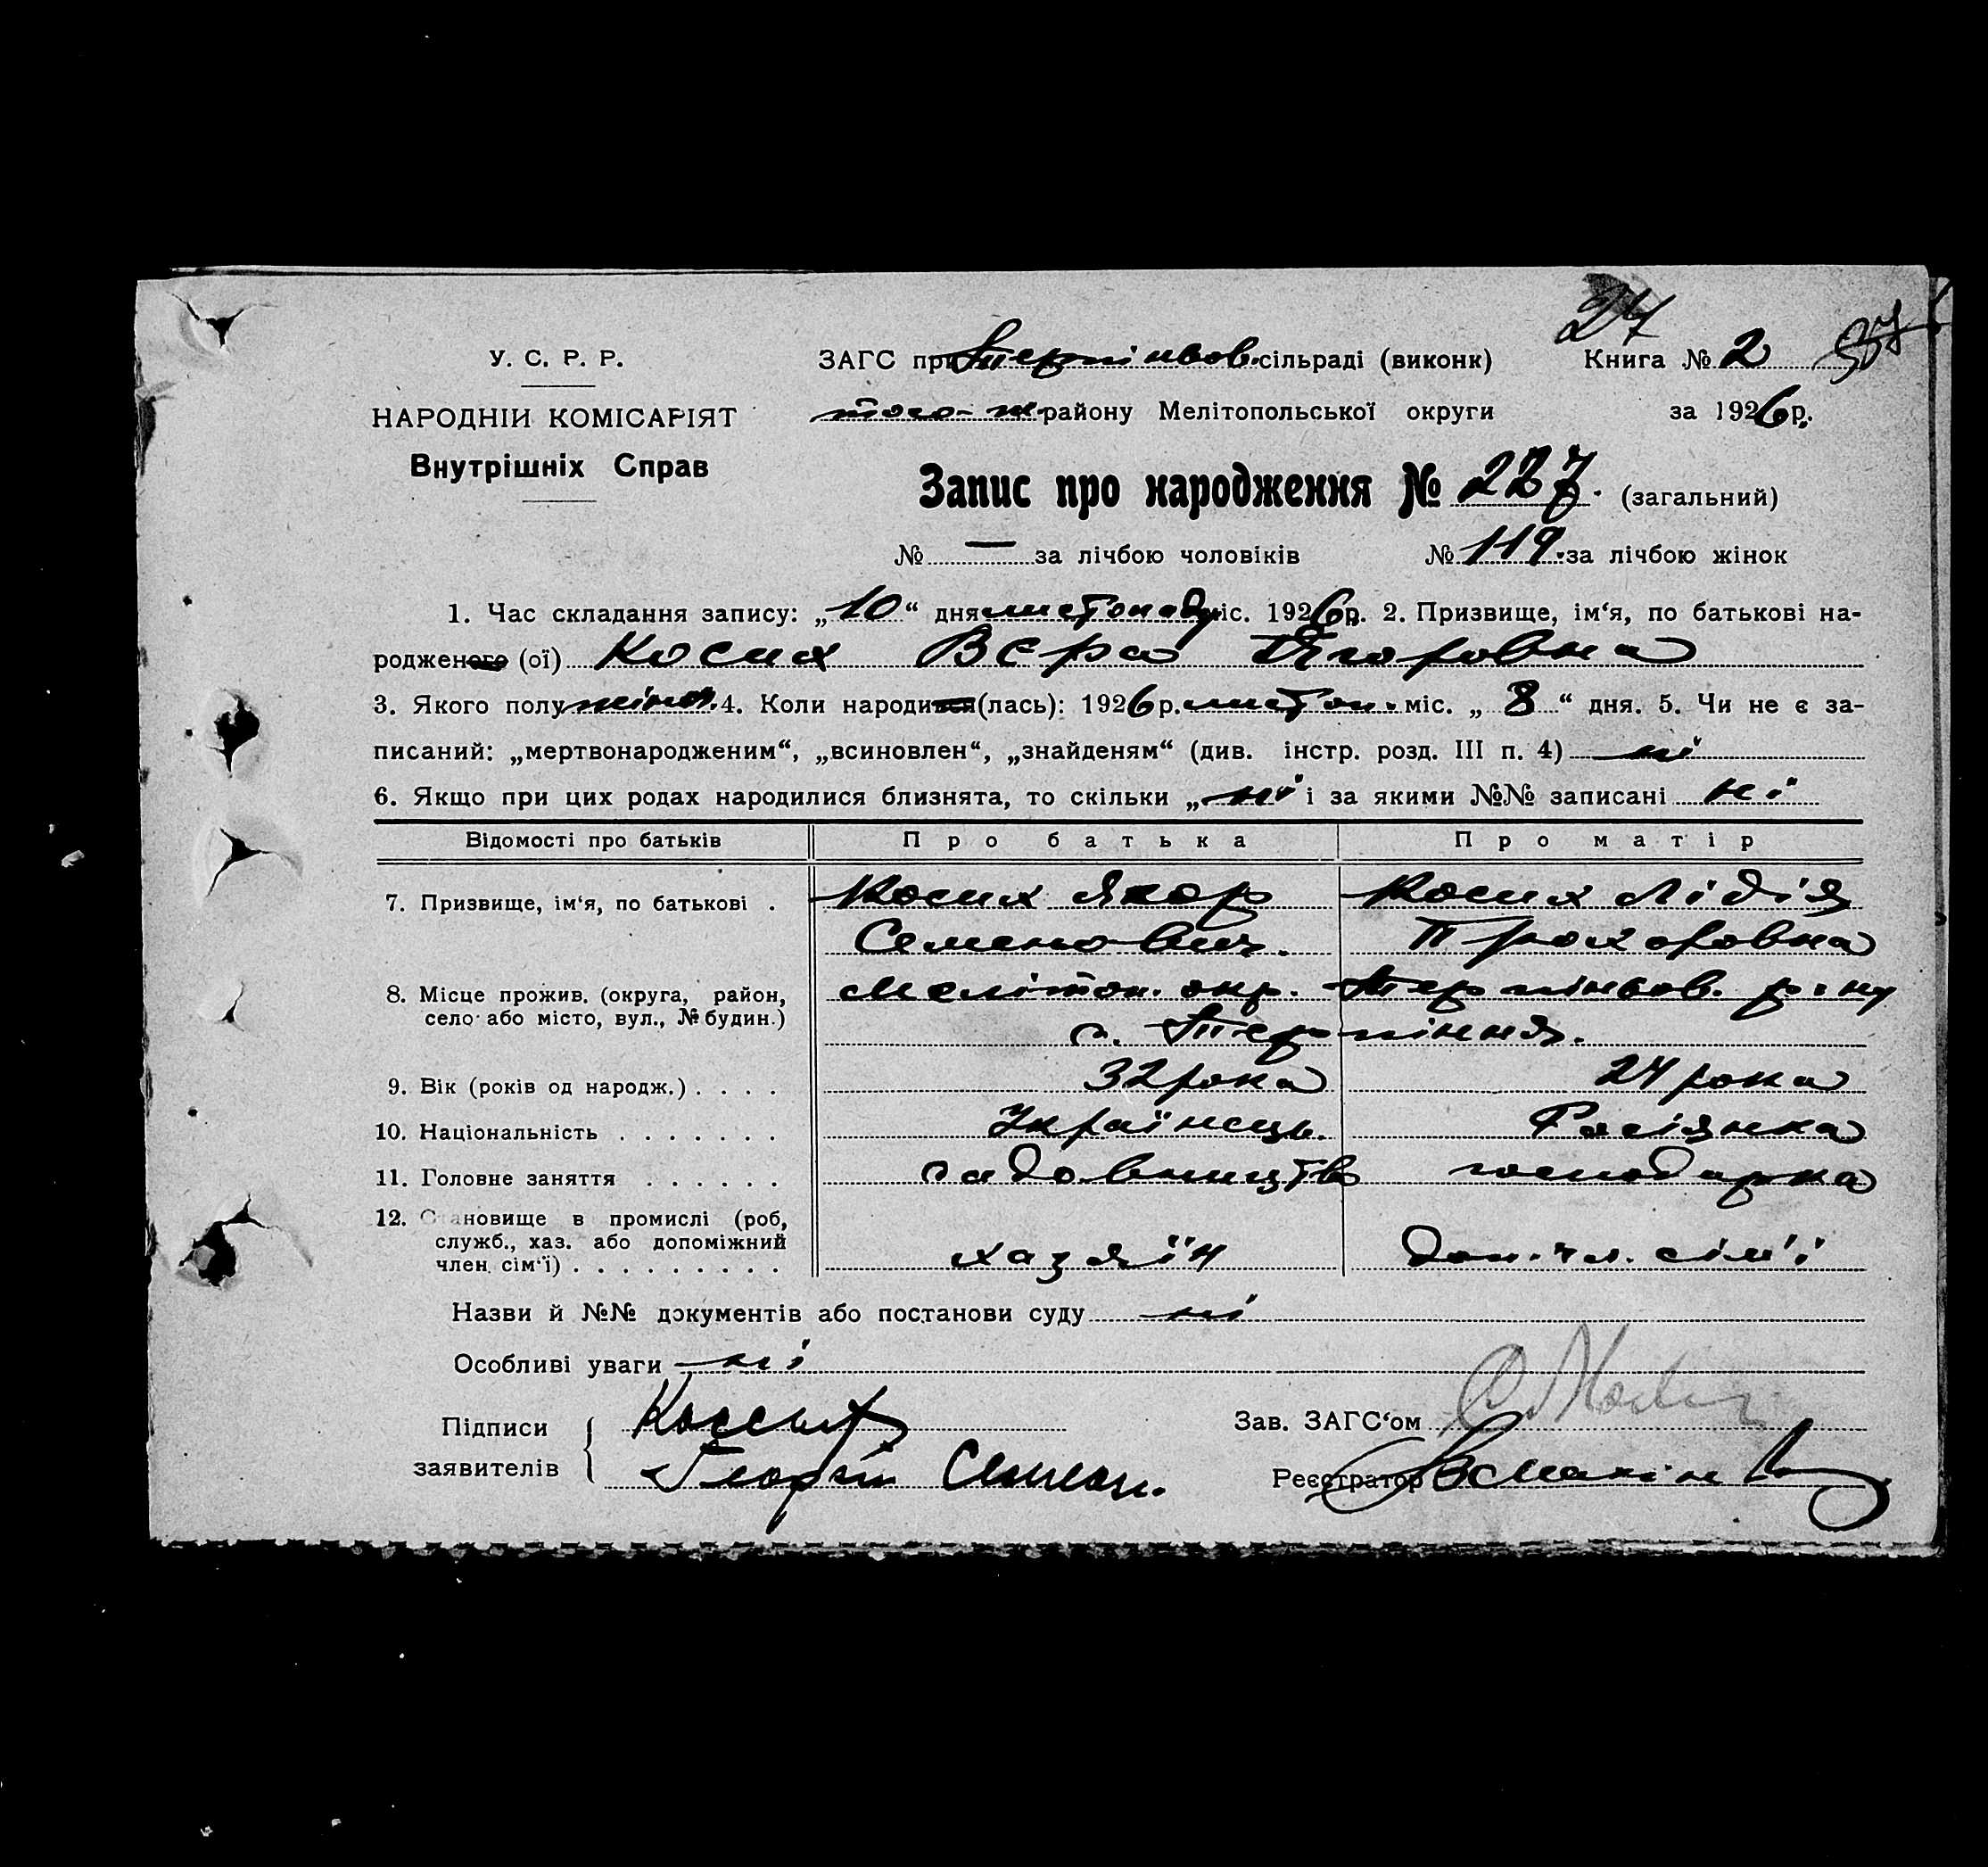 27
У. С. Р. Р.
ЗАГС при Терпіньов. сільраді (виконк)
Книга № 2
НАРОДНІЙ КОМІСАРІЯТ
того-ж району Мелітопольської округи
за 1926 р.
Внутрішніх Справ
Запис про народження № 227. (загальний)
№ — за лічбою чоловіків № 119. за лічбою жінок
1. Час складання запису: „10“ дня листопаду міс. 1926 р. 2. Призвище, ім‘я, по батькові на-
родженого (ої) Косих Вєра Ягоровна
3. Якого полу жіноч. 4. Коли народився (лась): 1926 р. листоп. міс. „8“ дня. 5. Чи не є за-
писаний: „мертвонародженим“, „всиновлен“, „знайденям“ (див. інстр. розд. III п. 4) ні
6. Якщо при цих родах народилися близнята, то скільки „ні і за якими №№ записані ні
Відомості про батьків Про батька Про матір
7. Призвище, ім‘я, по батькові . Косих Якор Косих Лідія
Семенович. Прохоровна
8. Місце прожив. (округа, район, Мелітоп. окр. Терпіньов. р-ну
село або місто, вул., № будин.) с. Терпіння.
9. Вік (років од народж.) . . . . 32 рока 24 рока
10. Національність . . . . . . . Українець. Расіянка
11. Головне заняття . . . . . . садовництв господарка
12. Становище в промислі (роб,
служб., хаз. або допоміжний
член сім‘ї) . . . . . . . . . хазяїн Доп. чл. сім'ї
Назви й №№ документів або постанови суду ні
Особливі уваги ні
Підписи Косых
Зав. ЗАГС‘ом
заявителів Георгій Семен.
Реєстратор